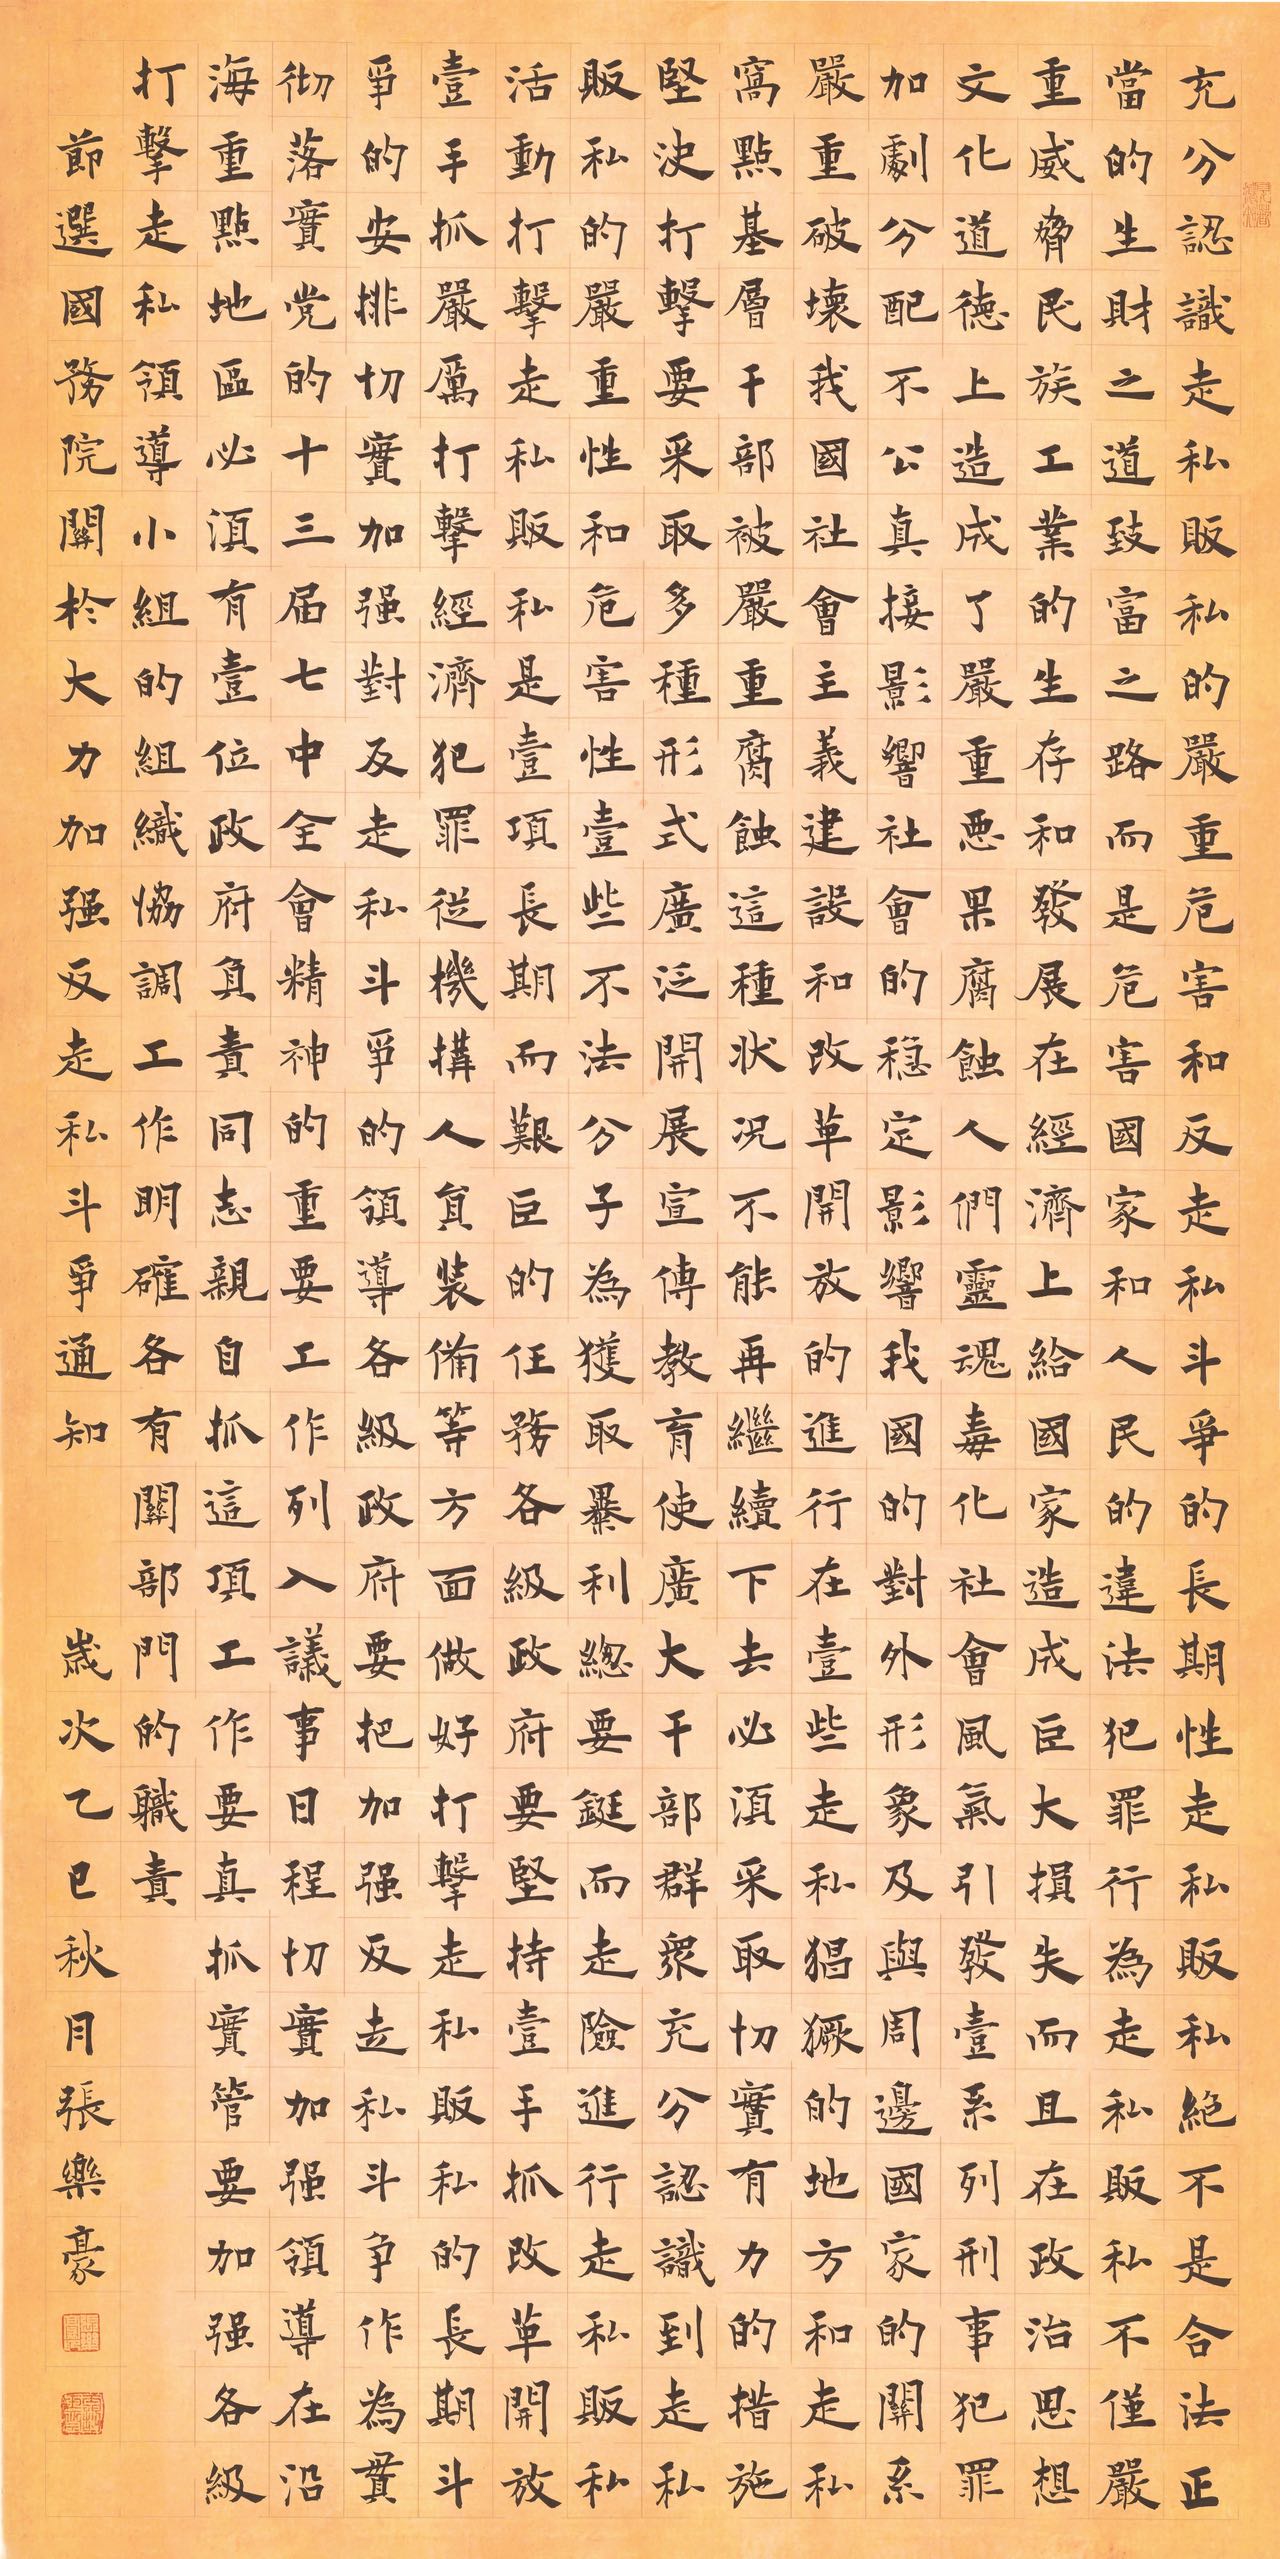 充分認識走私販私的嚴重危害和反走私斗爭的長期性走私販私絕不是合法正
當的生財之道致富之路而是危害國家和人民的違法犯罪行為走私販私不僅嚴
重威脅民族工業的生存和發展在經濟上給國家造成巨大損失而且在政治思想
文化道德上造成了嚴重惡果腐蝕人們靈魂毒化社會風氣引發壹系列刑事犯罪
加劇分配不公真接影響社會的穩定影響我國的對外形象及與周邊國家的關系
嚴重破壞我國社會主義建設和改革開放的進行在壹些走私猖獗的地方和走私
窩點基層干部被嚴重腐蝕這種狀況不能再繼續下去必須采取切實有力的措施
堅決打擊要采取多種形式廣泛開展宣傳教育使廣大干部群眾充分認識到走私
販私的嚴重性和危害性壹些不法分子為獲取暴利總要鋌而走險進行走私販私
活動打擊走私販私是壹項長期而艱巨的任務各級政府要堅持壹手抓改革開放
壹手抓嚴厲打擊經濟犯罪從機構人員裝備等方面做好打擊走私販私的長期斗
爭的安排切實加强對反走私斗爭的領導各級政府要把加强反走私斗争作為貫
彻落實党的十三届七中全會精神的重要工作列入議事日程切實加强領導在沿
海重點地區必須有壹位政府負責同志親自抓這項工作要真抓實管要加强各級
打擊走私領導小組的組織協調工作明確各有關部門的職責
節選國務院關於大力加强反走私斗爭通知 歲次乙巳秋月張樂豪